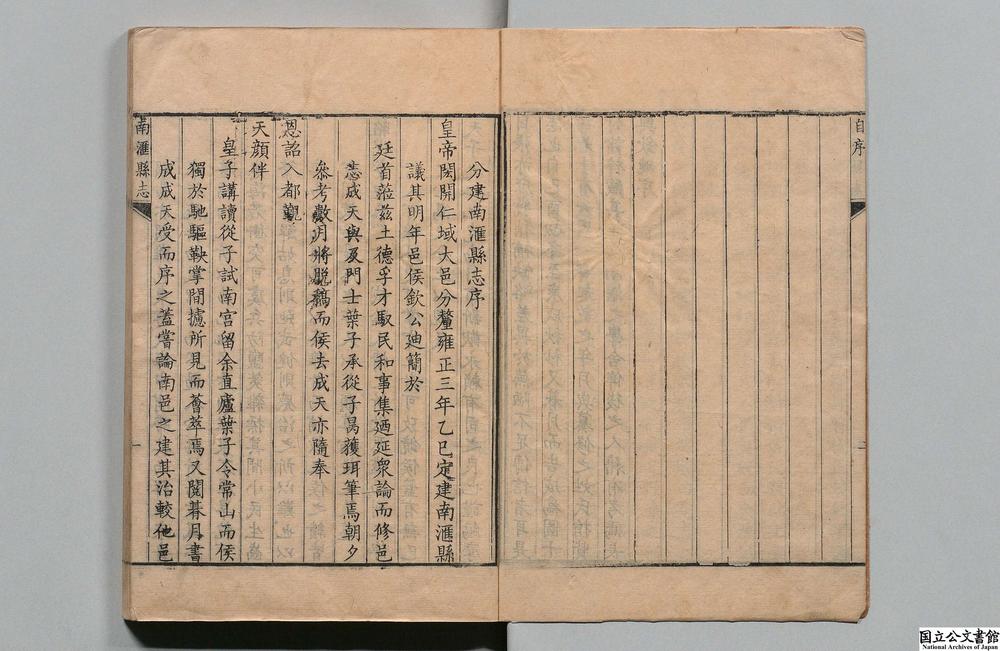 自序
二
分建南滙縣志序
皇帝閎開仁域大邑分釐雍正三年乙巳定建南滙縣
議其明年邑侯欽公廸簡於
廷首蒞茲土德孚才馭民和事集廼延衆論而修邑
志成天與及門士葉子承從子昺獲珥筆焉朝夕
叅考數月將脫稿而侯去成天亦隨奉
恩詔入都覲
天顔伴
皇子講讀從子試南宮留余直廬葉子令常山而侯
獨於馳驅鞅掌間攄所見而薈萃焉又閱朞月書
成成天受而序之蓋嘗論南邑之建其治較他邑
南滙縣志
一
国立公文書館
National Archives of Japan